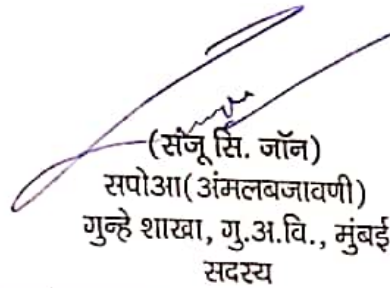 (संजू सि. जॉन)
सपोआ(अंमलबजावणी)
गुन्हे शाखा, गु.अ.वि., मुंबई
सदस्य